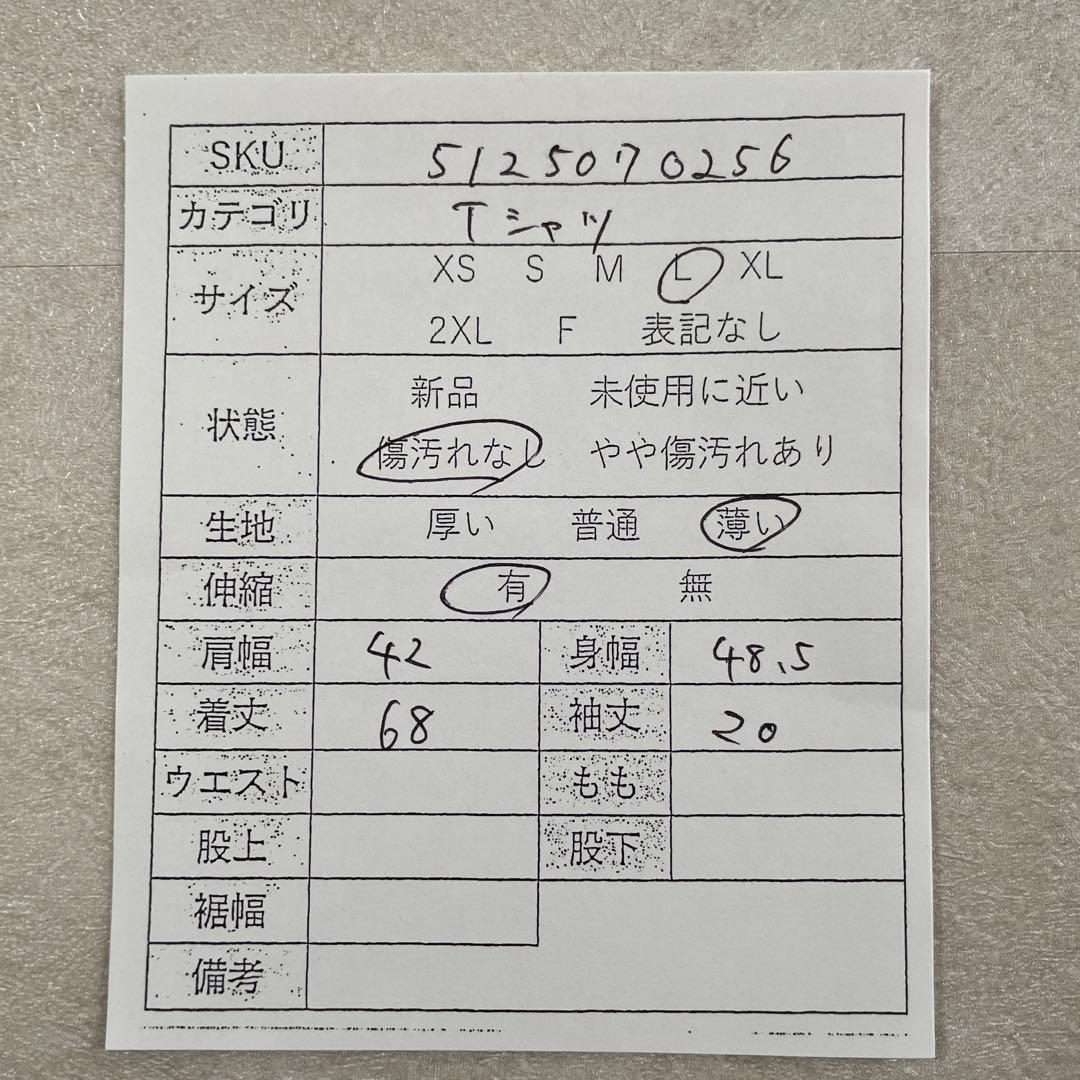 SKU 5125070256
カテゴリ Tシャツ
サイズ XS S M L XL
2XL F 表記なし
状態 新品 未使用に近い
傷汚れなし やや傷汚れあり
生地 厚い 普通 薄い
伸縮 有 無
肩幅 42 身幅 48.5
着丈 68 袖丈 20
ウエスト もも
股上 股下
裾幅
備考